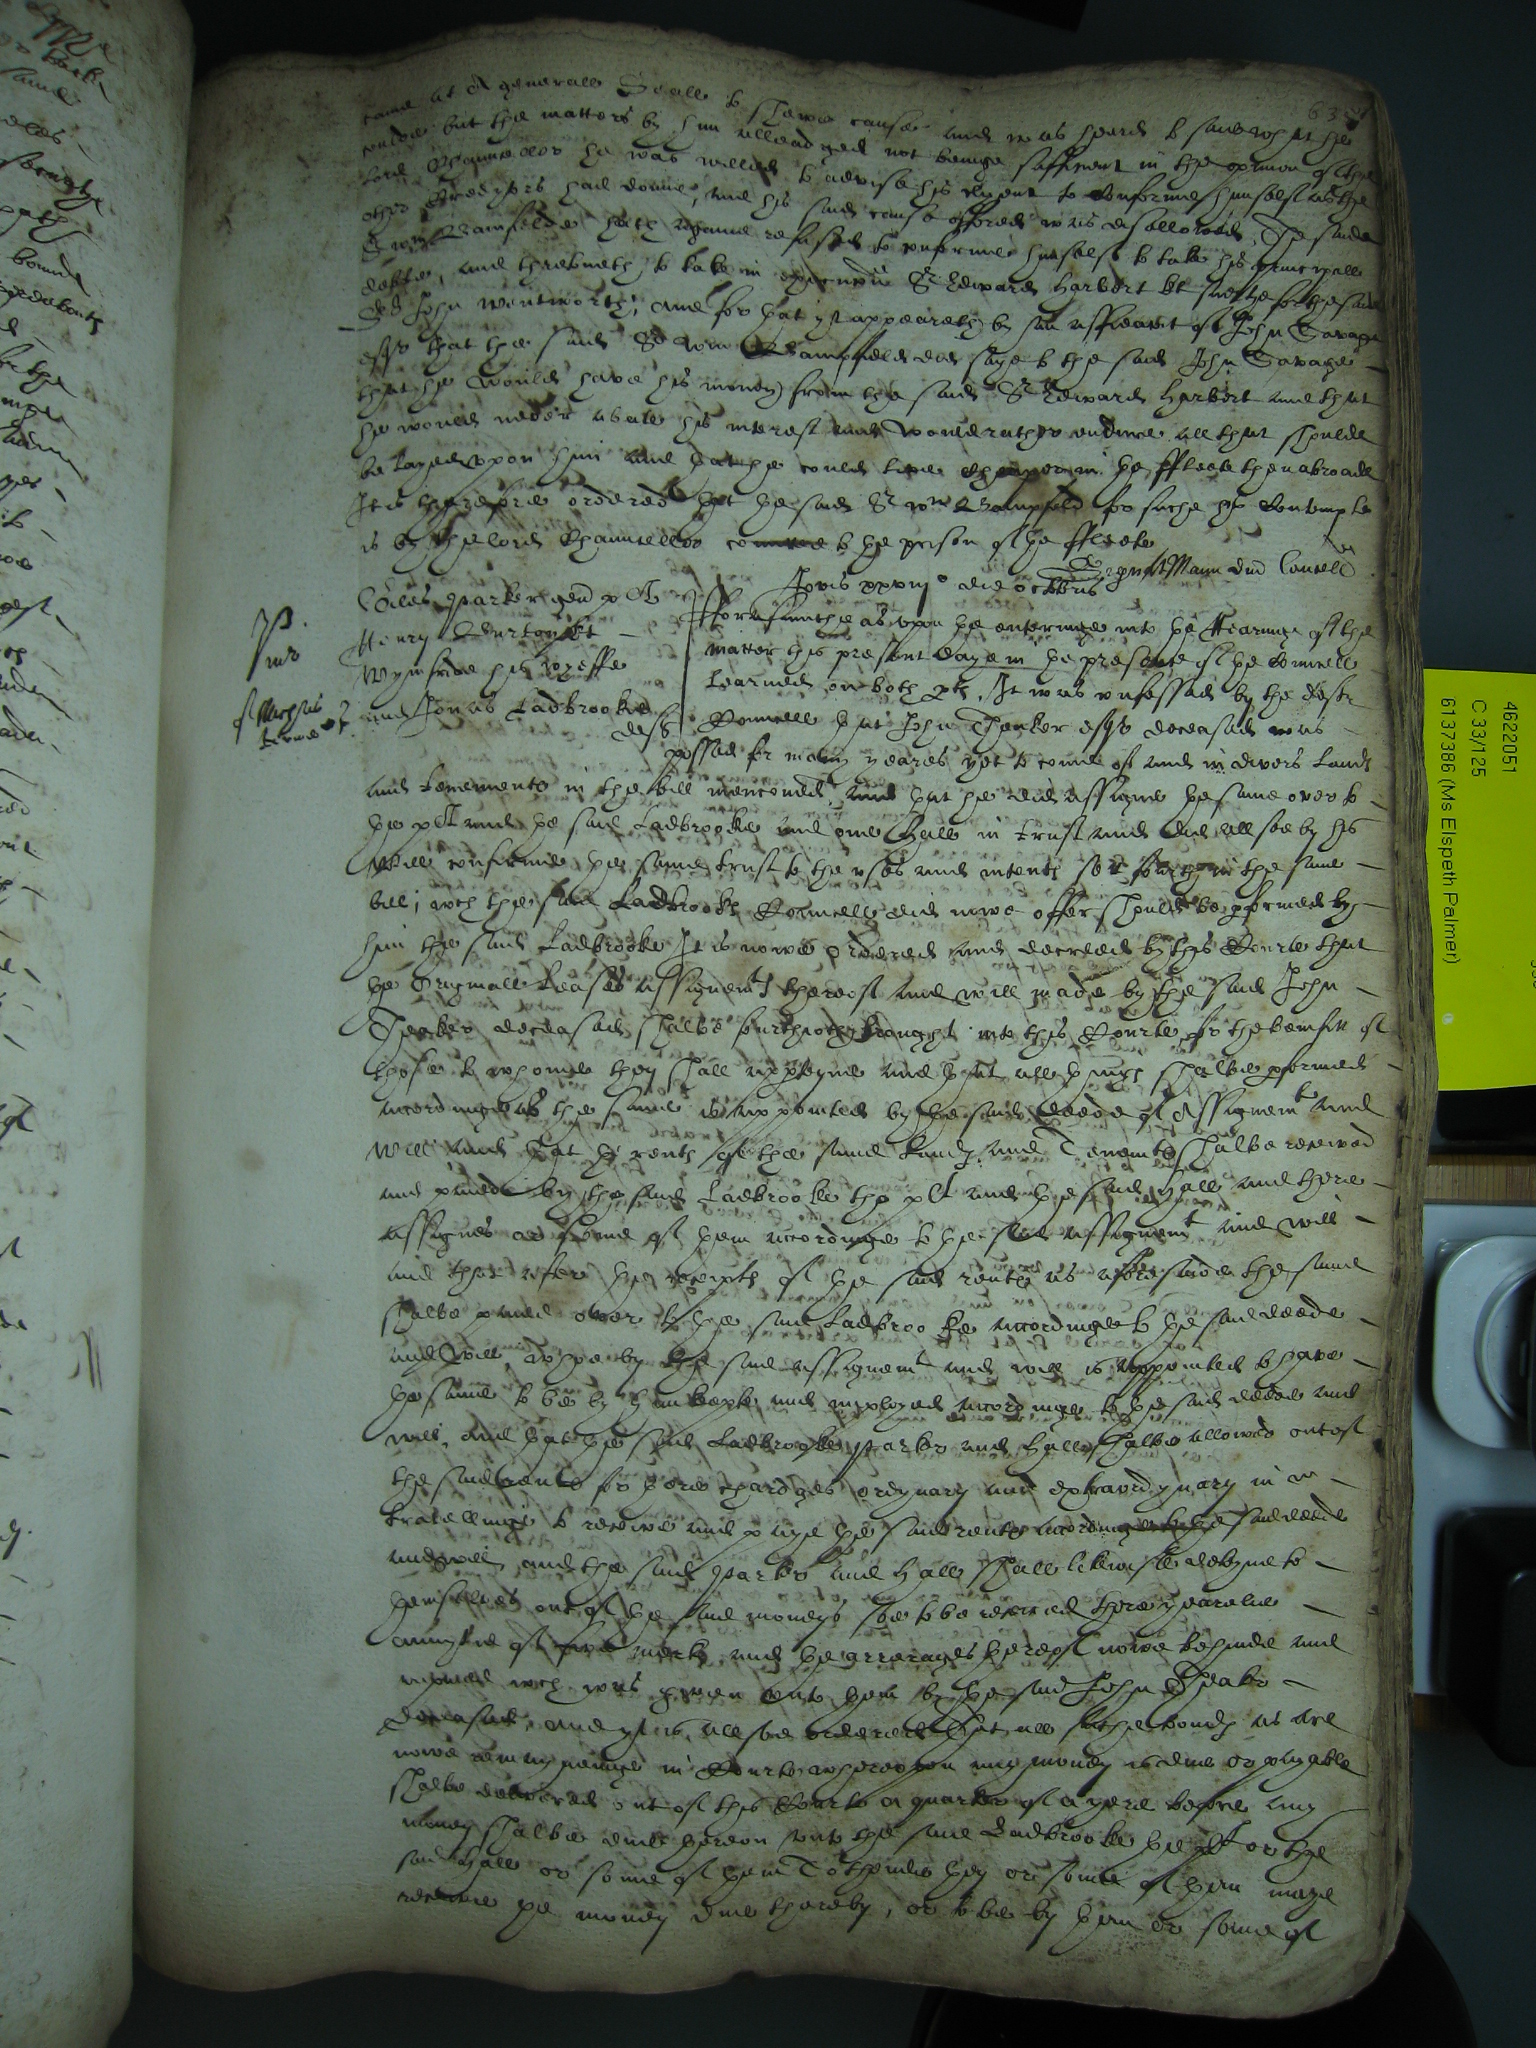 came at a generall Seale to shewe cause and was heard to saie what he
coulde but the matters by him alleadged not beinge sufficient in the opinion of the
lord Chauncellor he was willed to advise his clyent to conforme himselfe as the
other Creditors had donne, and his said cause offered was disallowed, The saide
Sr Wm Bamfelde hath againe refused to conforme himselfe to take his principall
debte, and threatneth to take in execucon Sr Edward Harbert kt suertie for the said
Sr John Wentworth, and for that yt appeareth by an affidavit of John Savage
esqr that the said Sr Wm Bampfeild did saye to the said John Savage
that he would have his money from the said Sr Edward Harbert and that
he would never abate his interest and would rather endure all that shoulde
be layed upon him and that he could live cheaper in the ffleete then abroade
It is therefore ordered that the said Sr Wm Bampfeld for suche his Contempte
is by the lord Chauncellor comitted to the prison of the ffleete
Jovis xxviijo die Octobris
Miles Parker gen plt
Henry Burton kt
Wynifride his wyeffe
and Jonas Ladbrooke
deft
fforasmuche as upon the enteringe into the Hearinge of the
matter this present daye in the presence of the Councell
learned on both pts, It was confessed by the deftes
Councell that John Theaker esqr deceased was
possed for many yeares yet to come of and in divers lands
and tenements in the bill menconed, and that he did assigne the same over to
the plt and the said Ladbrooke and one Hall in trust and did allsoe by his
Will confirme the same trust to the uses and intents sett forth in the same
bill, wch the said Ladbrooks Councell did nowe offer should be pformed by
him the said Ladbrooke It is nowe ordered and decreed by this Courte that
the Originall Leases assignemts thereof and will made by the said John
Theaker deceased shalbe forthwth brought into this Courte for the benefitt of
those to whome they shall apperteyne and that all things shalbe pformed
accordinge as the same is appointed by the said deede of Assignemt and
Will and that the rents of the said lands and Tenemts shalbe receved
and paied by the said Ladbrooke the plt and the said Hall and there
assignes or some of them accordinge to the said assignemt and will
and that after the receipts of the said rents as aforesaide the same
shalbe paied over to the said Ladbrooke accordinge to the said deede
and Will, whoe by the said assignemt and will is appointed to have
the same to be by him kepte and imployed accordinge to the said deede and
will, And that the said Ladbrooke Parker and Hall shalbe allowed out of
the said rents for there chardges ordynary and extraordynary in
travellinge to receive and paye the said rents accordinge to the said deede
and will, and the said Parker and Hall shall likewise deteyne to
themselves out of the said moneys soe to be received there yearelie
annytie of five merks and the arrerages thereof nowe behinde and
unpaied wch was given unto them by the said John Theaker
deceased, and yt is allsoe ordered that all suche bonds as are
nowe remayneinge in Courte whereupon any money is due or payable
shalbe delivered out of this Courte a quarter of a yere before any
money shalbe due thereon unto the said Ladbrooke the plt or the
said Hall or some of them To thende they or some of them maye
receive the money due thereby, or to be by them or some of
4622051
C 33/125
6137386 (Ms Elspeth Palmer)